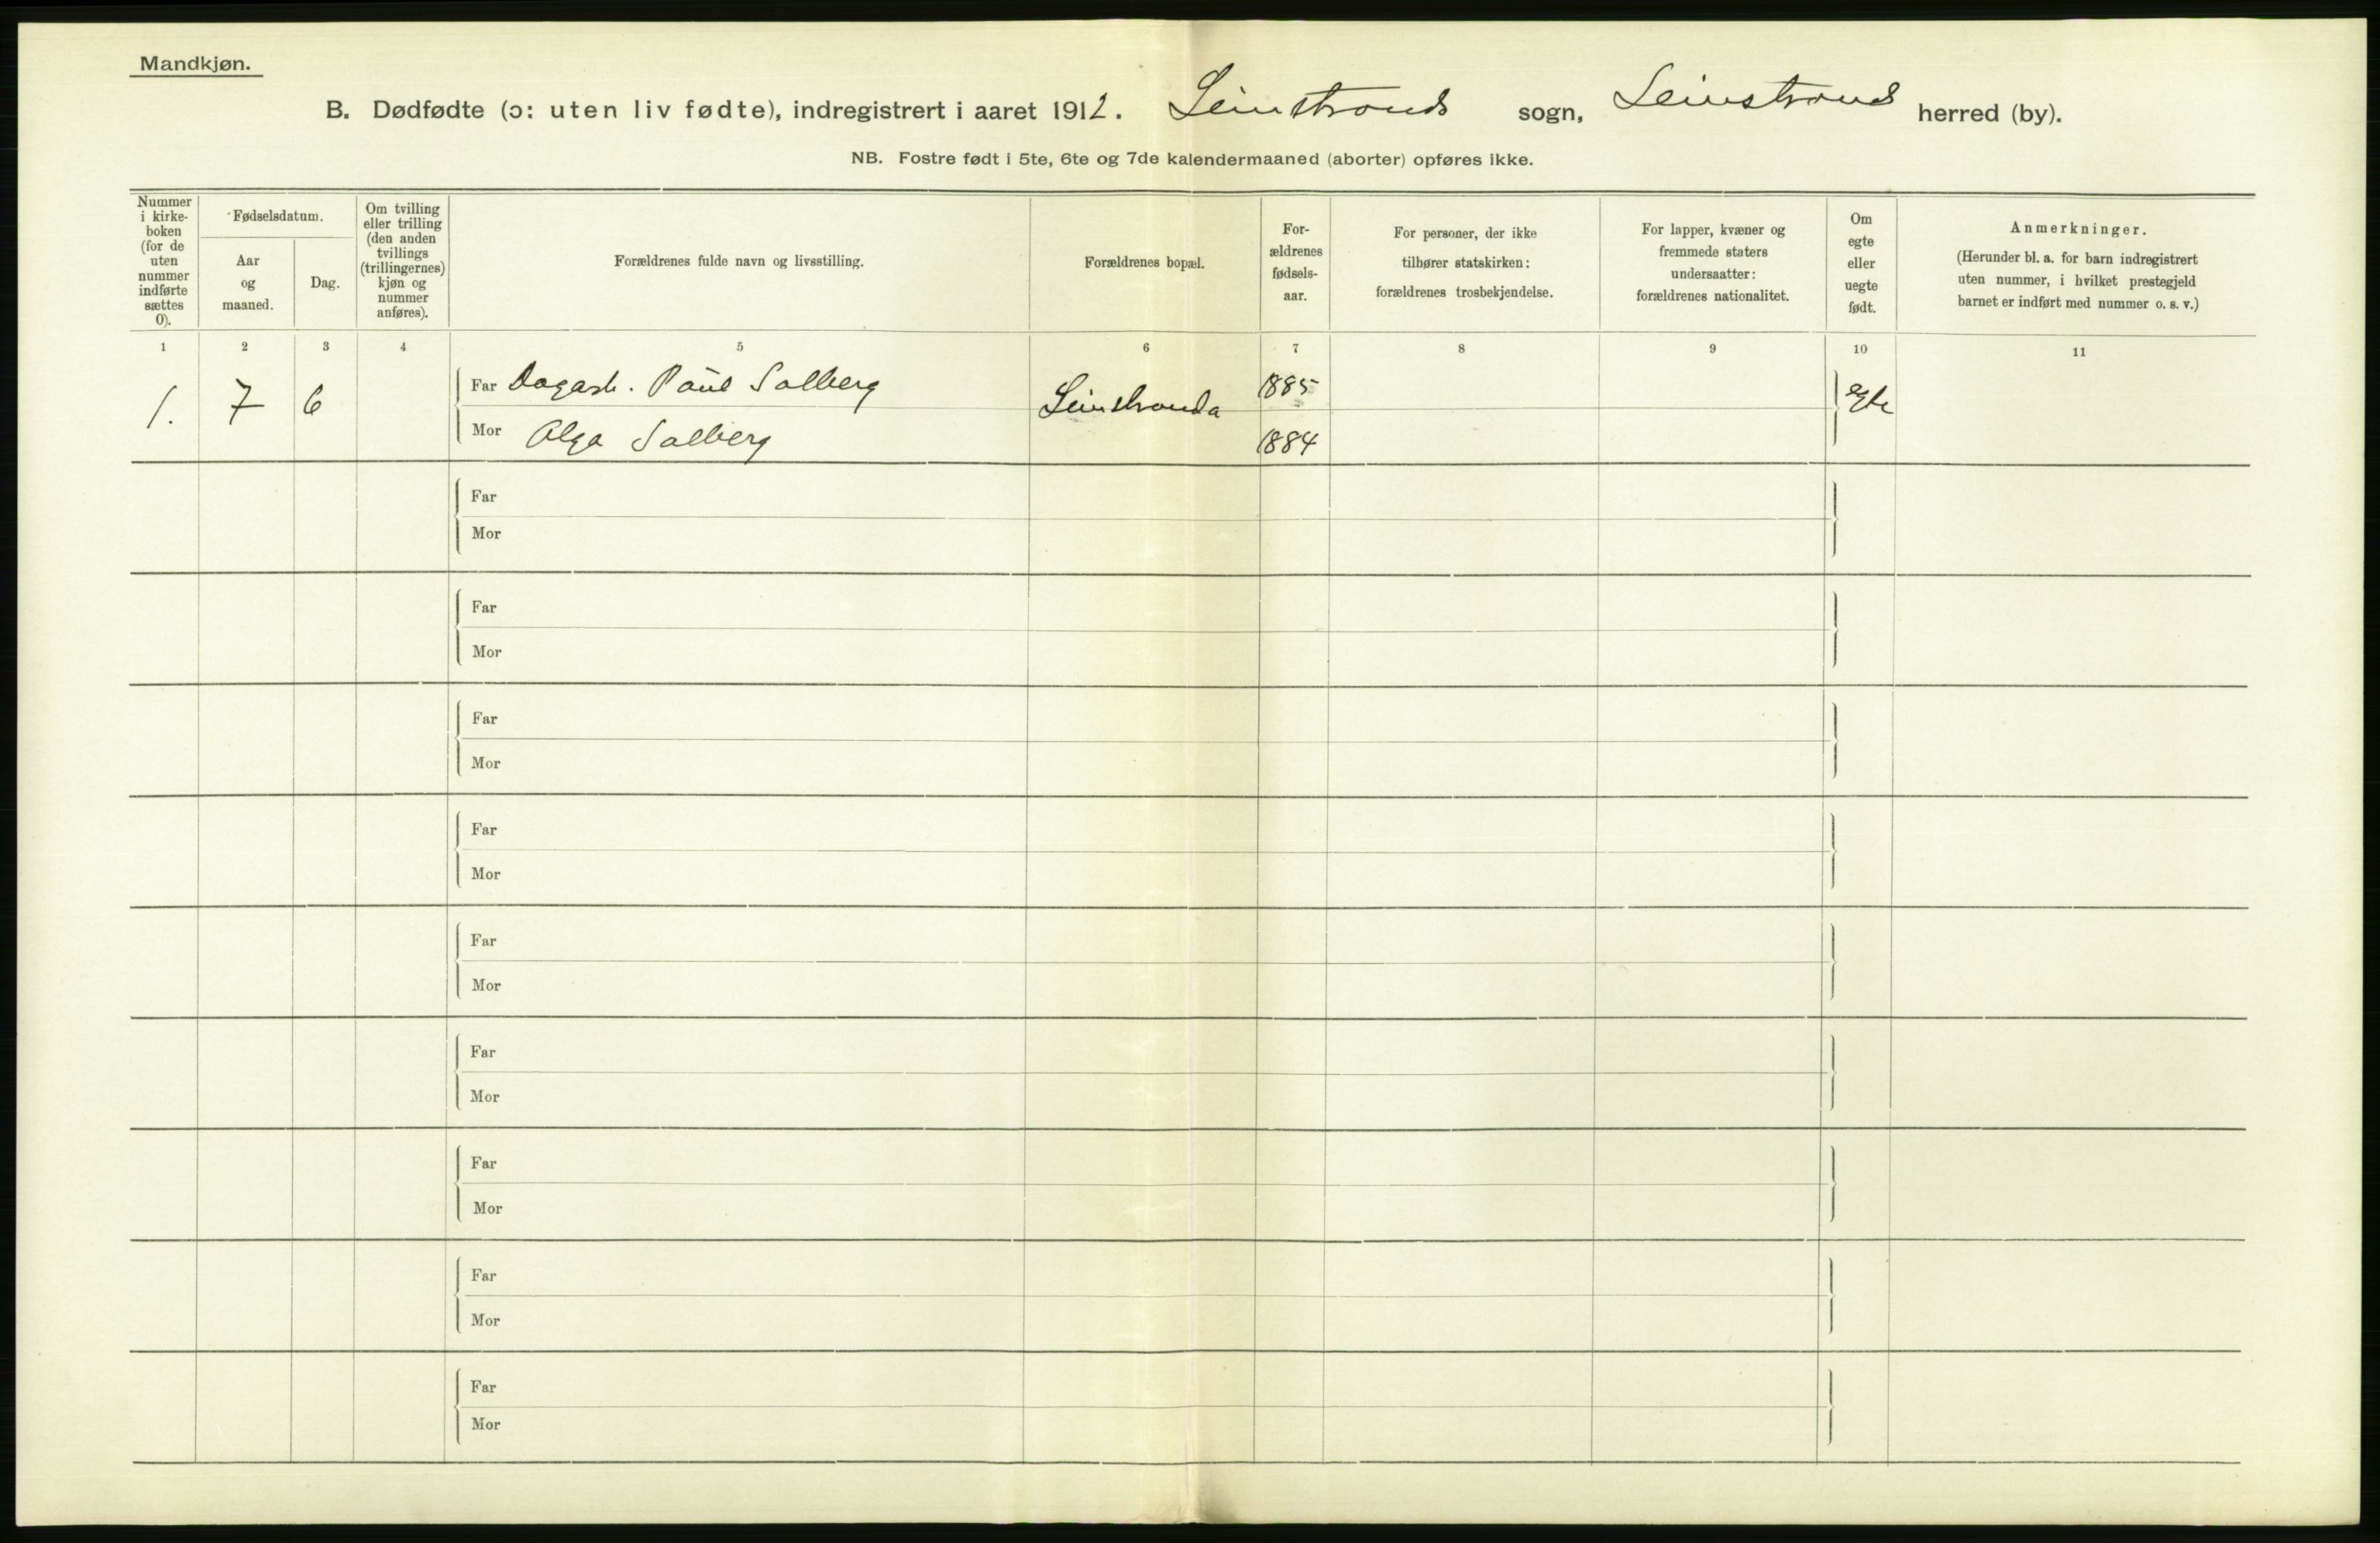 Mandkjøn.
B. Dødfødte (ɔ: uten liv fødte), indregistrert i aaret 1912. Leinstrands sogn, Leinstrand herred (by).
NB. Fostre født i 5te, 6te og 7de kalendermaaned (aborter) opføres ikke.
Nummer
i kirke-
boken
(for de
uten
nummer
indførte
sættes
0).
Fødselsdatum.
Aar
og
maaned.
Dag.
Om tvilling
eller trilling
(den anden
tvillings
(trillingernes)
kjøn og
nummer
anføres).
Forældrenes fulde navn og livsstilling.
Forældrenes bopæl.
For-
ældrenes
fødsels-
aar.
For personer, der ikke
tilhører statskirken:
forældrenes trosbekjendelse.
For lapper, kvæner og
fremmede staters
undersaatter:
forældrenes nationalitet.
Om
egte
eller
uegte
født.
Anmerkninger.
(Herunder bl. a. for barn indregistrert
uten nummer, i hvilket prestegjeld
barnet er indført med nummer o. s. v.)
1 2 3 4 5 6 7 8 9 10 11
1. 7 6
Far Dagarb. Paul Solberg
Mor Olga Solberg
Leinstranda
1885
1884
Egte
Far
Mor
Far
Mor
Far
Mor
Far
Mor
Far
Mor
Far
Mor
Far
Mor
Far
Mor
Far
Mor